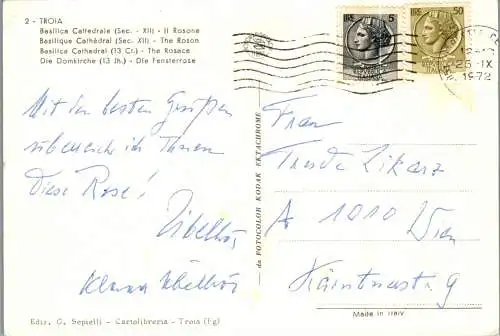 2 - TROIA
Basilica Cattedrale (Sec. - XII) - Il Rosone
Basilique Cathédral (Sec. XII) - The Roson
Basilica Cathedral (13 Ct.) - The Rosace
Die Domkirche (13 Jh.) - Die Fensterrose
LIRE 5
LIRE 50
25-IX
1972
Mit den besten Grüßen
überreiche ich Ihnen
diese Rose!
da FOTOCOLOR KODAK EKTACHROME
Frau
Trude Likarz
A 1010 Wien
Kärntnerstr. 9
Ediz. G. Sepielli - Cartolibreria - Troia (Fg)
Made in Italy